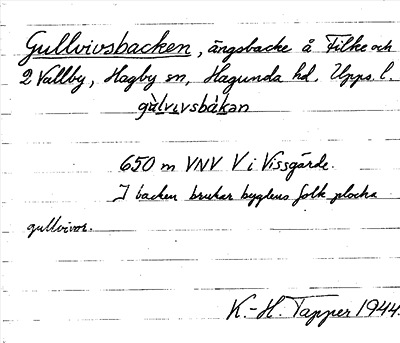 Gullvivsbacken, ängsbacke å Filke och
2 Vallby, Hagby sn, Hagunda hd, Upps. l.
gùlvivsbàkan
650 m VNV V i Vissgärde.
I backen brukar bygdens folk plocka
gullvivor.
K.-H. Tapper 1944.